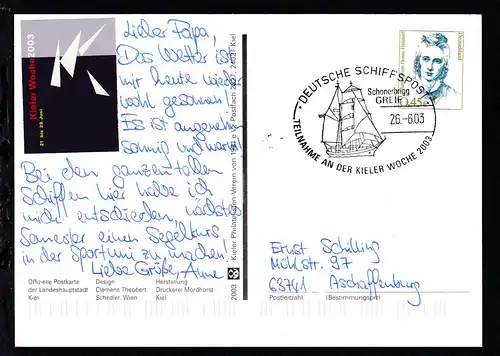 Kieler Woche 2003
21. bis 29. Juni
Lieber Papa,
Das Wetter ist
mir heute wieder
wohl gesonnen!
Es ist angenehm
sonnig und warm!
Bei den ganzen tollen
Schiffen hier habe ich
mich entschieden nächstes
Semester einen Segelkurs
in der Sportuni zu machen!
Liebe Grüße, Anne
Offizielle Postkarte
der Landeshauptstadt
Kiel
Design
Clemens Theobert
Schedler, Wien
Herstellung
Druckerei Mordhorst
Kiel
Kieler Philatelisten-Verein von 1931 e. V. Postfach 2007, 24027 Kiel
2003
DEUTSCHE SCHIFFSPOST
Schonerbrigg
GREIF
26.-6.03
TEILNAHME AN DER KIELER WOCHE 2003
Deutschland
0,45€
Ernst Schilling
Mühlstr. 97
63741 Aschaffenburg
Postleitzahl (Bestimmungsort)